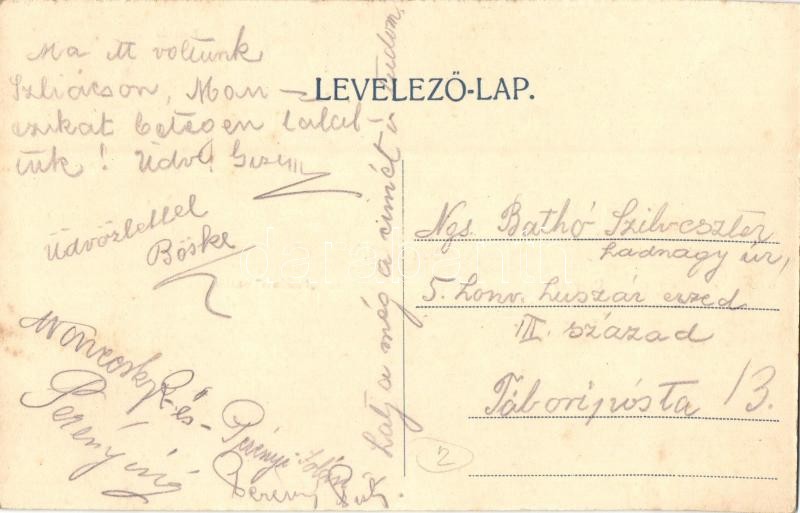 LEVELEZŐ-LAP.
Ma itt voltunk
Szliácson, Man-
czikat betegen talál-
tuk! Üdv.
Üdvözlettel
Böske
és
Perényi
Perényiné
Látja még a címét is tudom.
Ngs. Bathó Szilveszter
hadnagy úr,
5. honv. huszár ezred
III. század
Tábori posta 13.
2
darabanth